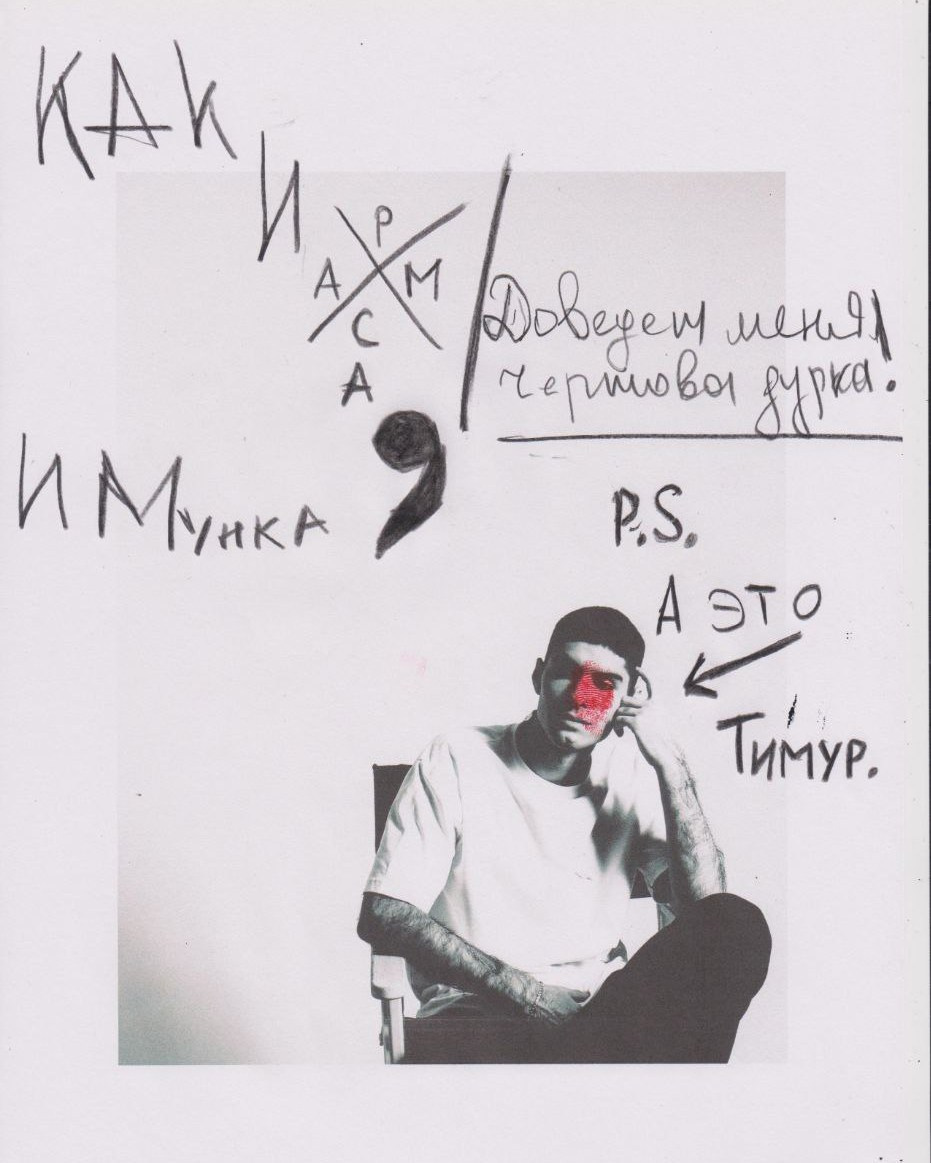 КАК
И
Р
А М
С
А
Доведет меня
чертова дурка!
И Мунка,
P.S.
А ЭТО
Тимур.